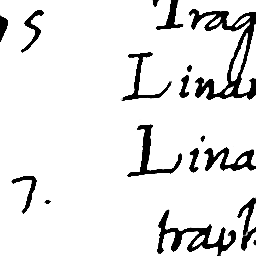 5 Trag
Linar
Lina
7.
traph